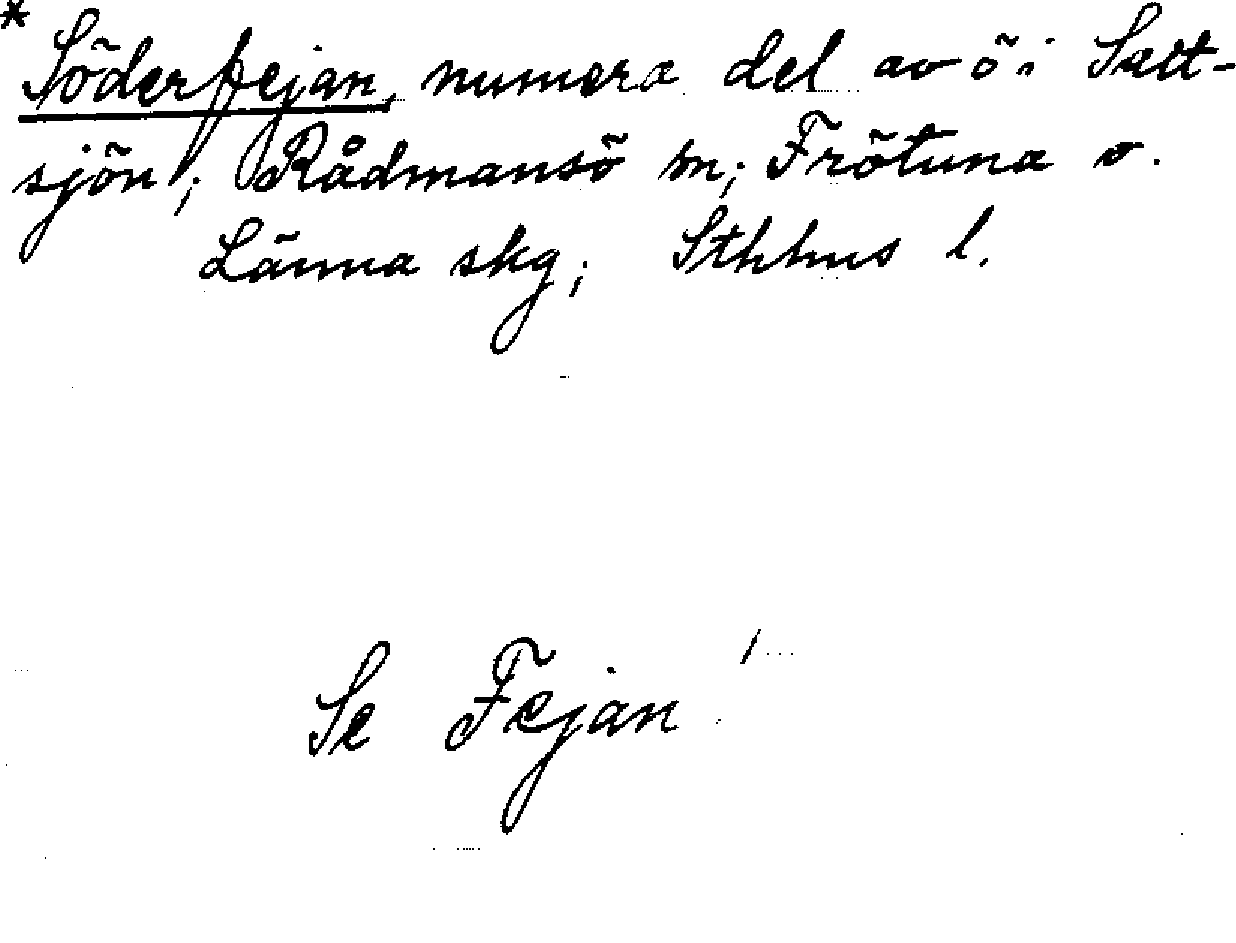 * Söderfejan, numera del av ö i Salt-
sjön; Rådmansö sn; Frötuna o.
Länna skg; Sthlms l.
Se Fejan